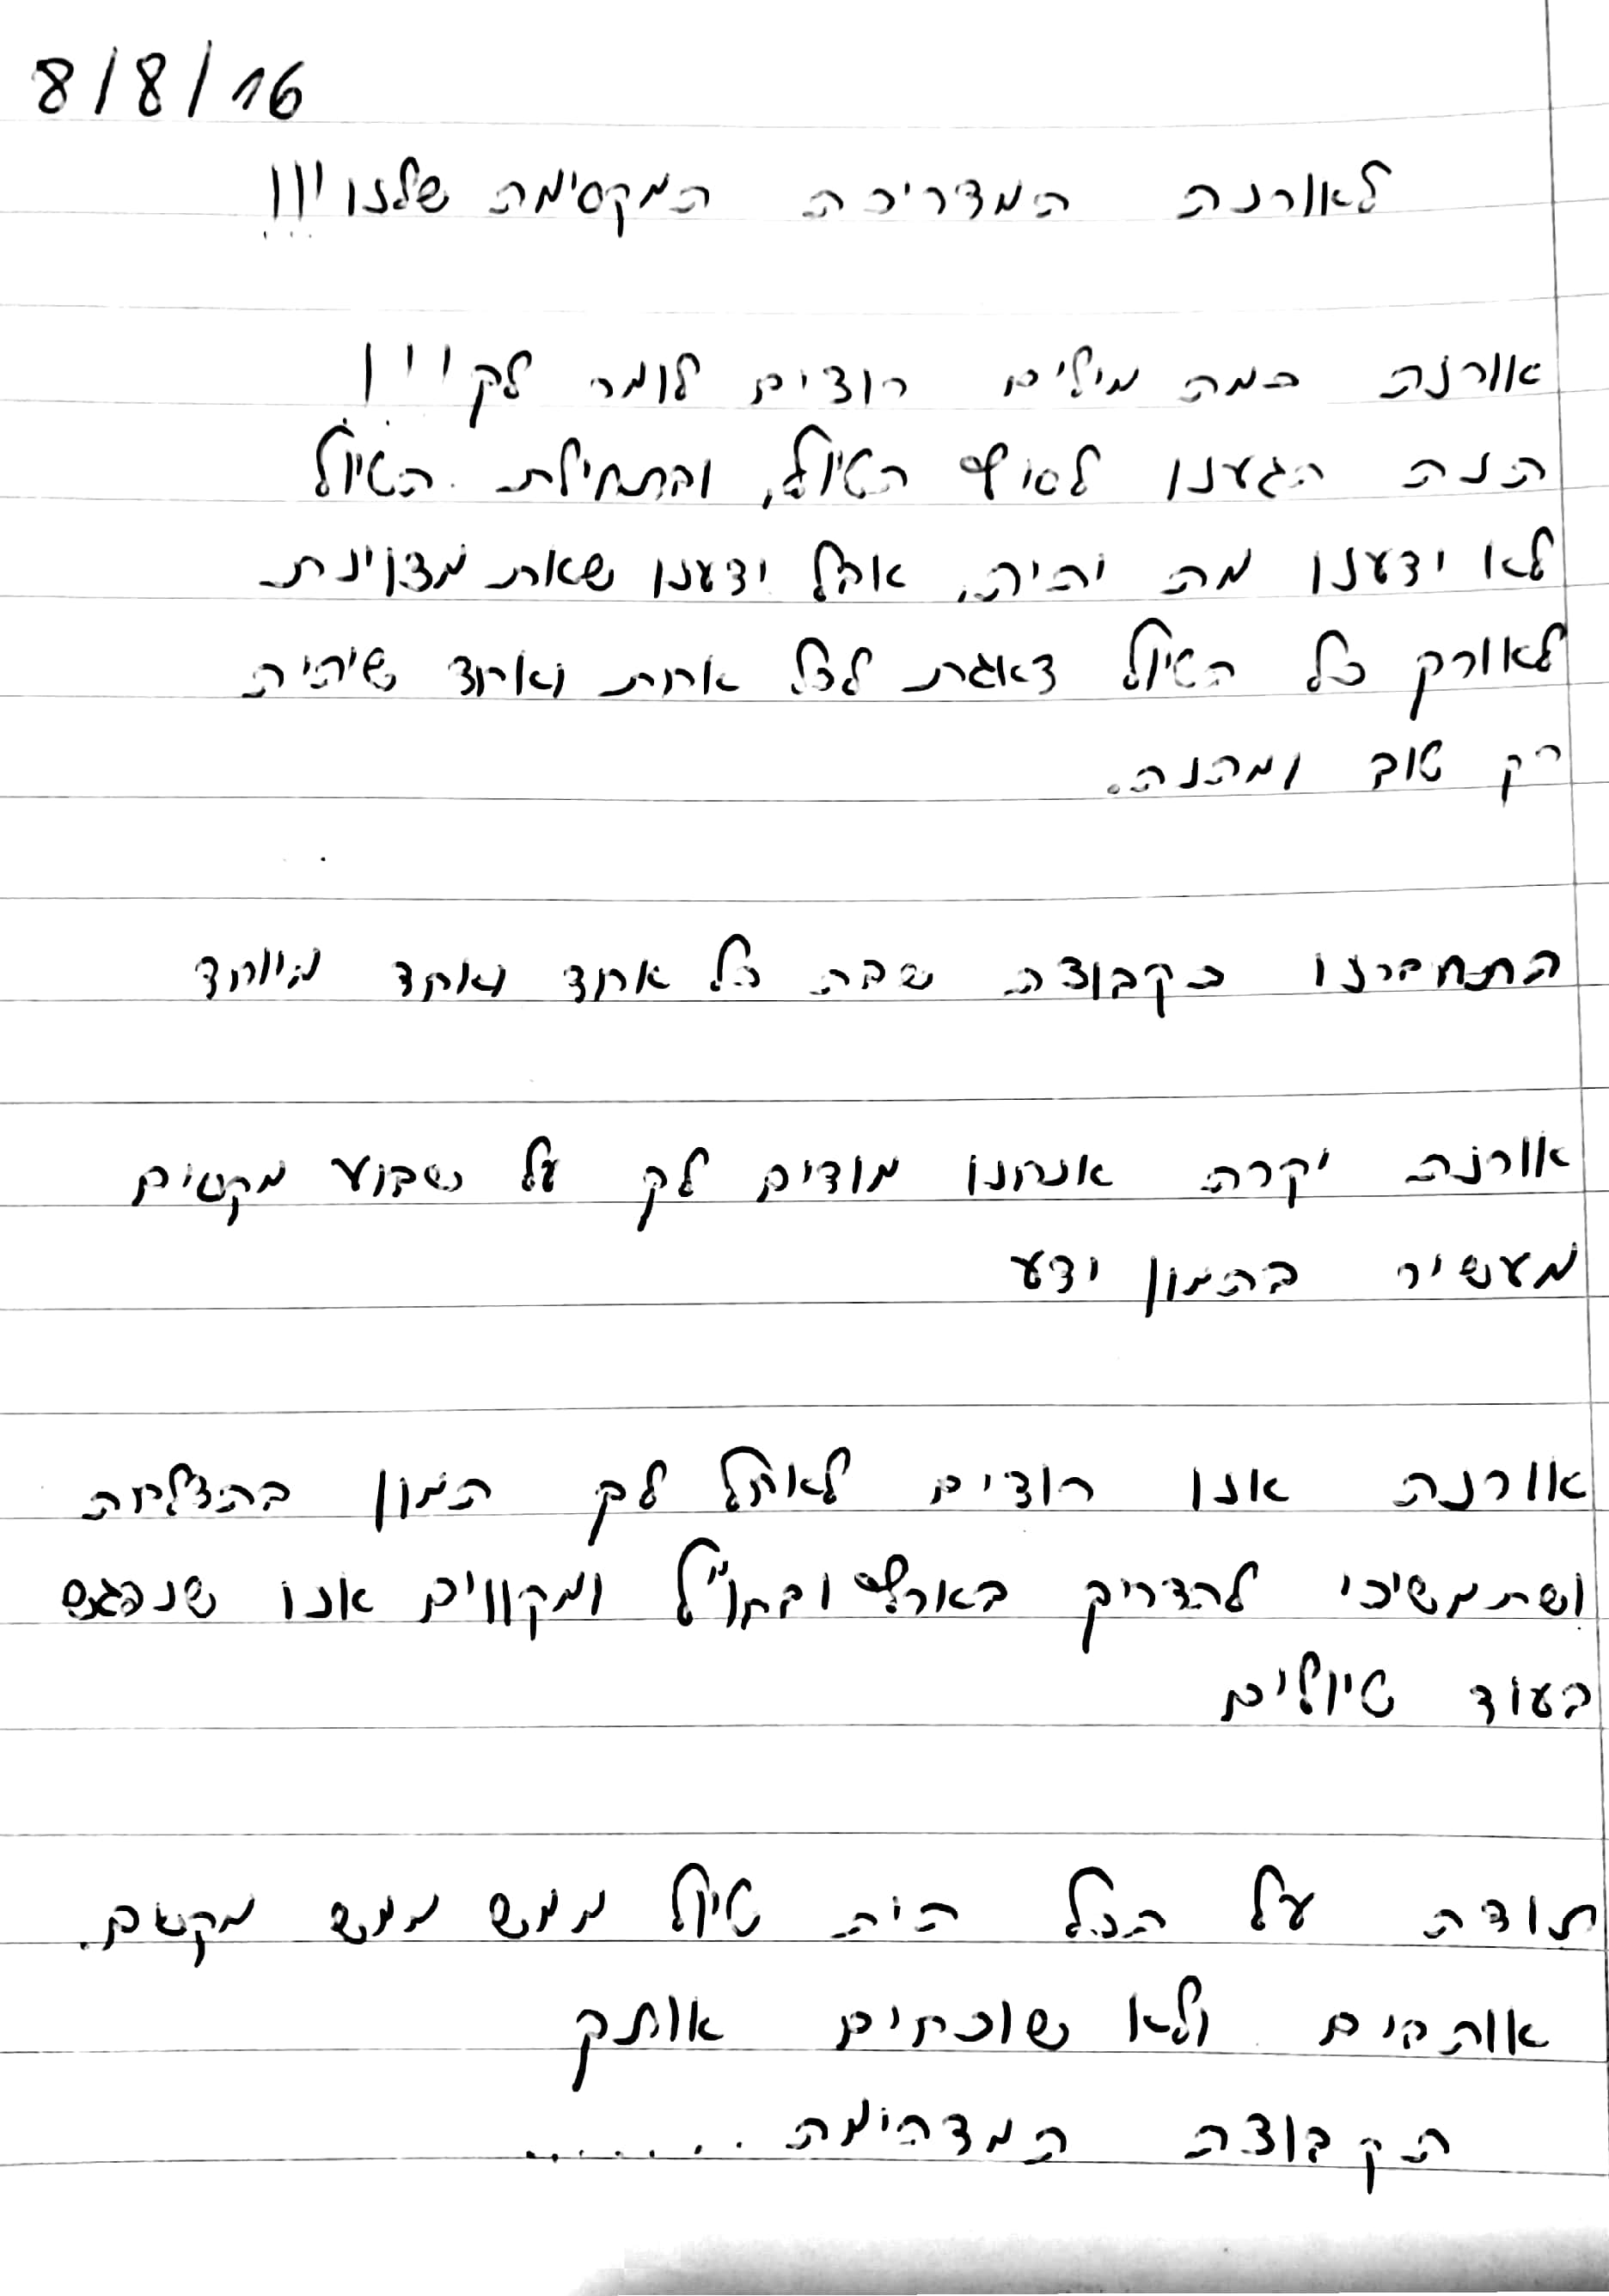 8/8/16
לאורנה המדריכה המקסימה שלנו !!!
אורנה כמה מילים רוצים לומר לך !!!
הנה הגענו לסוף הטיול, ובתחילת הטיול
לא ידענו מה יהיה, אבל ידענו שאת מצוינת
לאורך כל הטיול דאגת לכל אחת ואחד שיהיה
רק טוב ומהנה.
התחברנו כקבוצה שבה כל אחד ואחד מיוחד
אורנה יקרה אנחנו מודים לך על שבוע מקסים
מעשיר בהמון ידע
אורנה אנו רוצים לאחל לך המון בהצלחה
ושתמשיכי להדריך בארץ ובחו"ל ומקווים אנו שנפגש
בעוד טיולים
תודה על הכל היה טיול ממש ממש מקסים.
אוהבים ולא שוכחים אותך
הקבוצה המדהימה .......